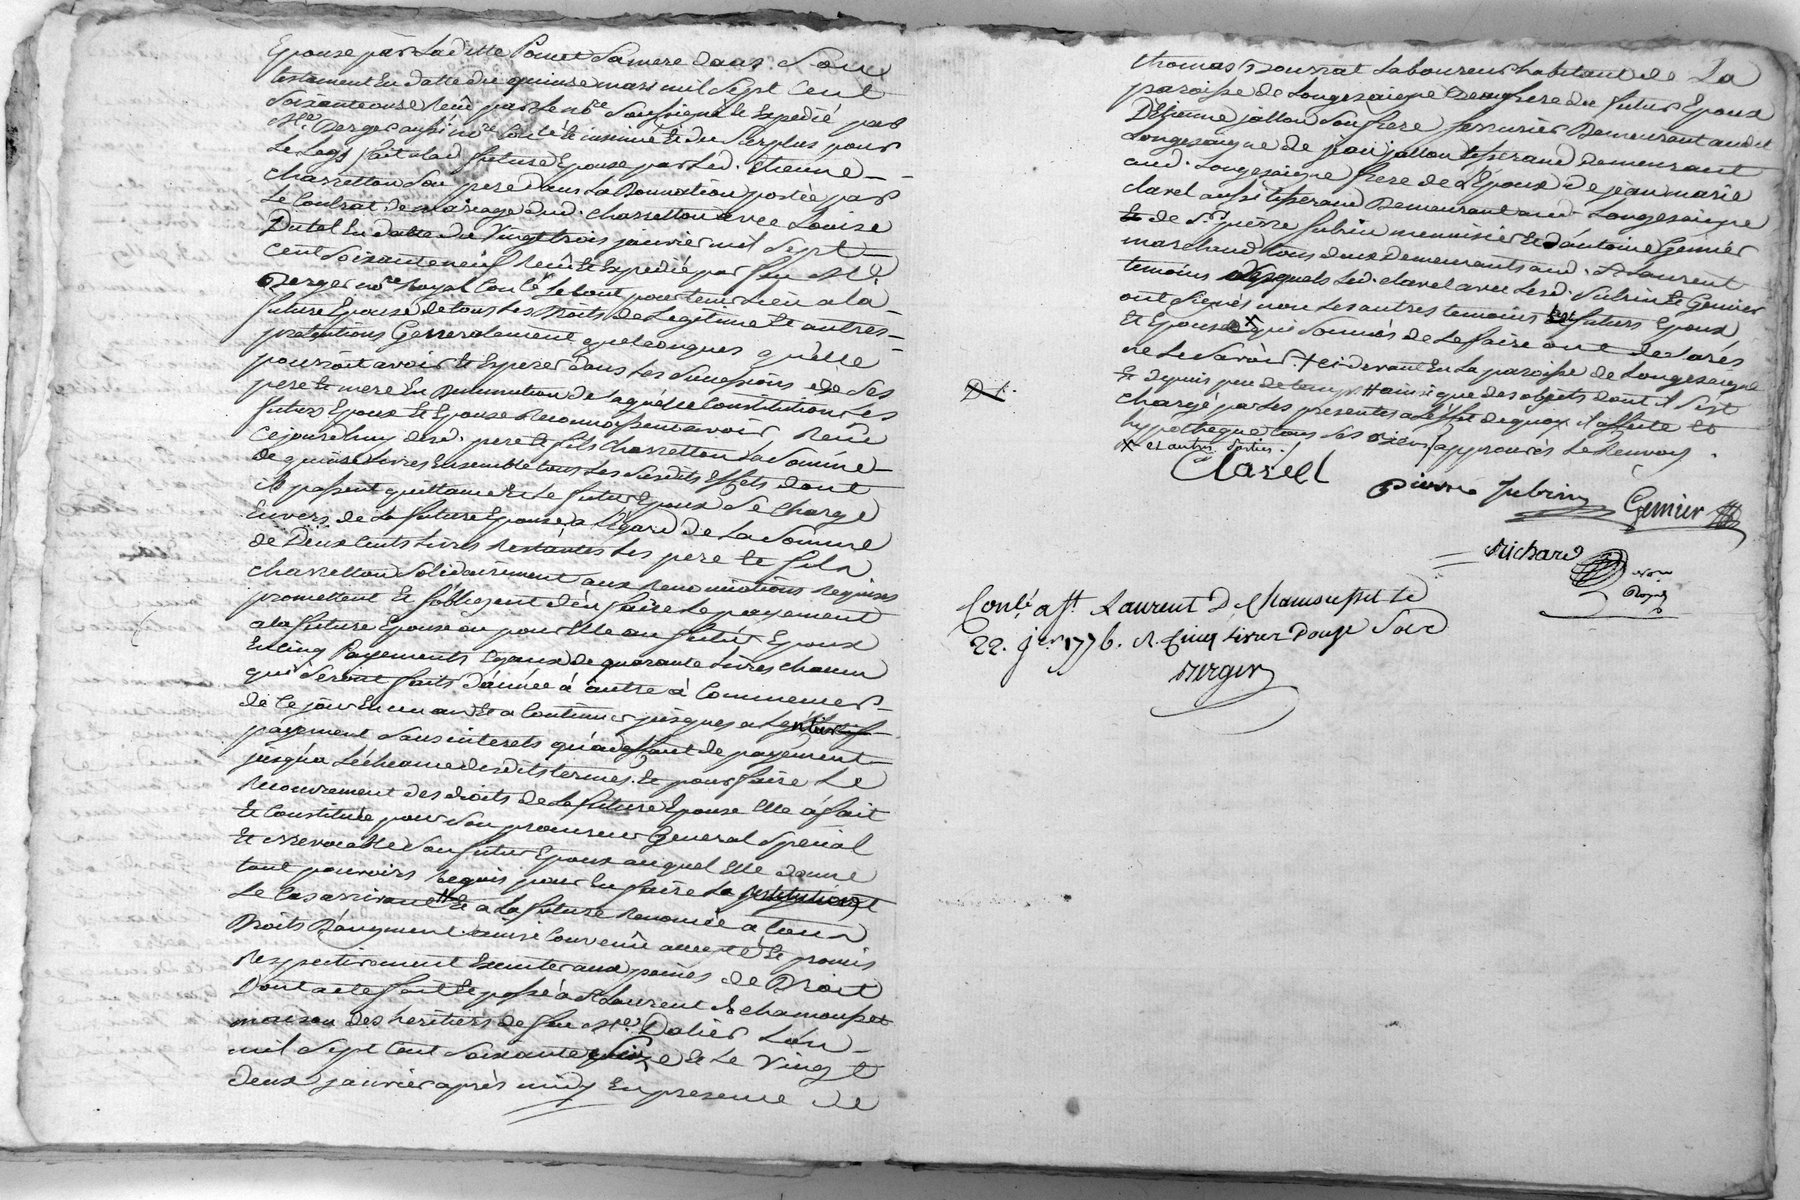 Epouse par Laditte Poncet Sa mere dans Son
testament En datte du quinze mars mil Sept Cent
Soixante onze Recû par le nre Soussigné et Expedié par
Me Berger aussi nre Conlé et insinué et du Surplus pour
Le Legs fait a lad future Epouse par Led. Etienne
Charretton Son pere dans La Donnation portée par
Le Contrat de mariage dud. Charretton avec Louise
Dutel En datte du Vingt trois janvier mil Sept
cent Soixante neuf Recû et Expedié par feu Me
Berger nre Royal Conlé Le tout pour tenir Lieu a la
future Epouse de tous Les Droits de Legitime et autres
pretentions Generalement quelconques qu'elle
pourroit avoir et Esperer dans Les Successions de Ses
pere et mere En Diminution de laquelle Constitution Les
futurs Epoux et Epouse Reconnoissent avoir Recû
Cejourdhuy desd. pere et fils Charretton La Somme
de quinse Livres Ensemble tous Les Susdits Effets dont
ils passent quittance et Le futur Epoux Se Charge
Envers de La future Epouse a L'Egard de La Somme
de Deux Cents Livres Restantes Les pere et fils
Charretton Solidairement aux Renonciations Requises
promettent et S'obligent d'en faire Le payement
a la future Epouse ou pour Elle au futur Epoux
En Cinq Payements Egaux de quarante Livres chacun
qui Seront faits d'année à autre à Commencer
de Ce jour En un an et a Continuer jusques a
payement Sans interets qu'a deffaut de payement
jusqu'a L'écheance desdits termes. Et pour faire Le
Recouvrement des droits de La future Epouse Elle a fait
Et Constitué pour Son procureur General Special
Et irrevocable Son futur Epoux auquel Elle donne
tout pouvoirs Requis pour En faire La Restitution
Le Cas arrivant a La future Renoncée a tous
Droits D'augment. ainsi Convenû accepté et promis
Respectivement Executer aux peines de Droit
Dont acte fait et passé a St Laurent de Chamousset
maison des heritiers de feu Me Dalier L'an
mil Sept Cent Soixante Seize et Le Vingt
deux janvier après midy En presence de
thomas Dourrat Laboureur habitant de La
paroisse de Longesaigne beaufrere du futur Epoux
D'Etienne jallon Son frere Serrurier Demeurant audit
Longesaigne de jean jallon tisserand demeurant
aud. Longesaigne frere de L'Epoux de jean marie
Clavel aussi tisserand Demeurant aud. Longesaigne
et de Sr. pierre Subrin menuisier et d'antoine Genier
marchand tous deux Demeurants aud. St Laurent
temoins Desquels Led. Clavel avec Lesd. Subrin et Genier
ont Signés non Les autres temoins futurs Epoux
Et Epouse X qui Sommés de Le faire ont declarés
ne Le Savoir. + ci devant En La paroisse de Longesaigne
Et depuis peu de temps # ainsi que des objets dont il S'est
Chargé par Les presentes a L'effet de quoy il affecte et
hypotheque tous Ses Biens / approuvés Le Renvoy.
X et autres parties./
Clavel
Pierre Subrin Genier
Richard
nre
Royal
Conlé a St. Laurent D. Chamousset Le
22. Jer. 1776. R. Cinq Livres Douze Sols
Berger